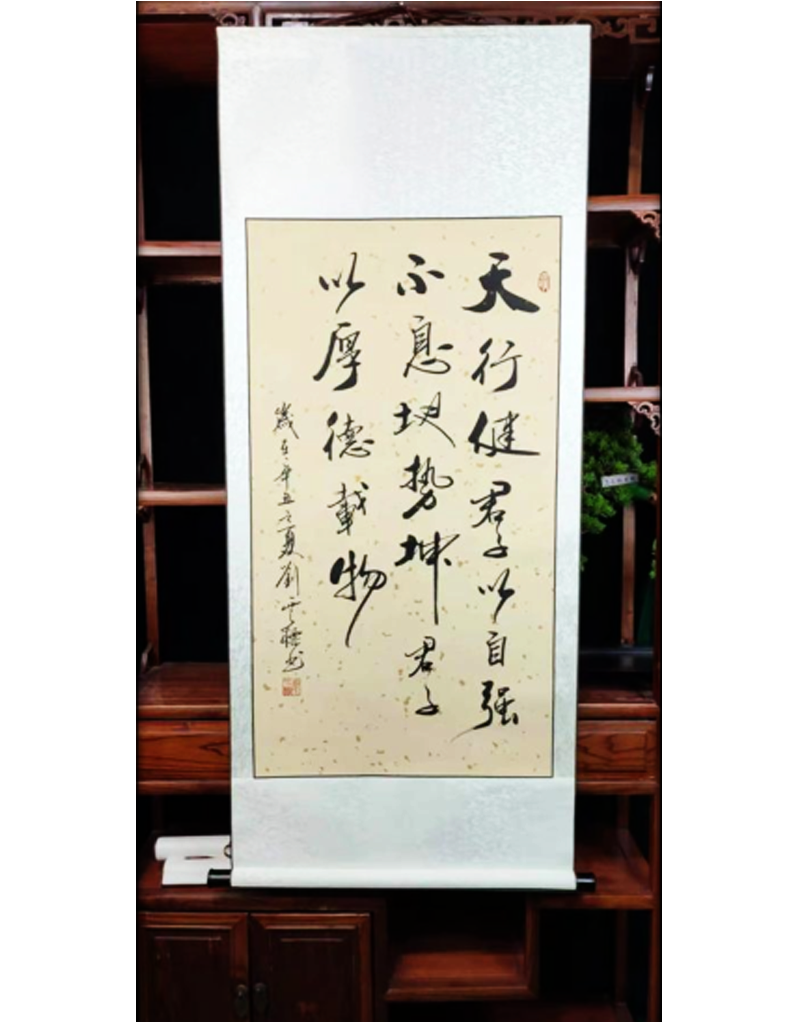 天行健君子以自强
不息地势坤君子
以厚德载物
岁在辛丑之夏刘云